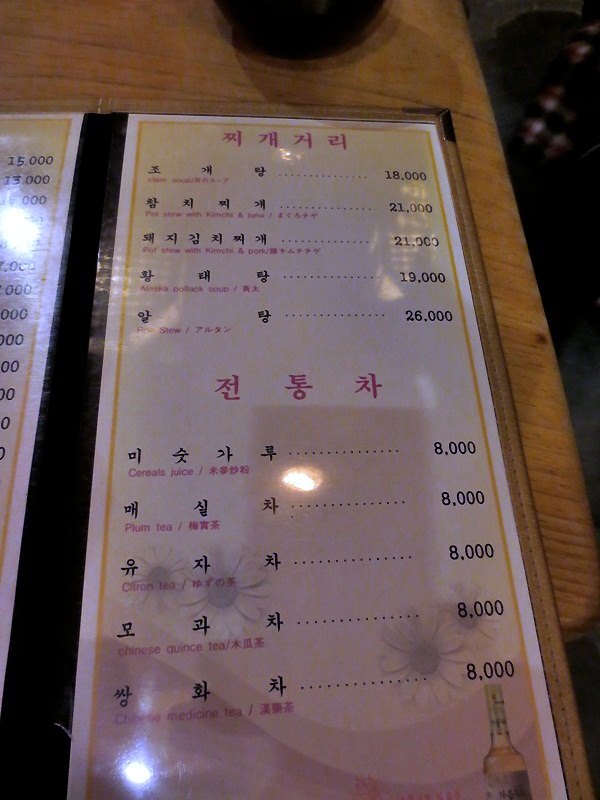 15,000
13,000
찌개거리
조개탕 18,000
clam soup/貝のスープ
참치찌개 21,000
Pot stew with Kimchi & tuna / まぐろチゲ
돼지김치찌개 21,000
Pot stew with Kimchi & pork/豚キムチチゲ
황태탕 19,000
Alaska pollack soup / 黃太
알탕 26,000
Roe Stew / アルタン
전통차
미숫가루 8,000
Cereals juice / 米麥炒粉
매실차 8,000
Plum tea / 梅實茶
유자차 8,000
Citron tea / ゆずの茶
모과차 8,000
chinese quince tea/木瓜茶
쌍화차 8,000
Chinese medicine tea / 漢藥茶